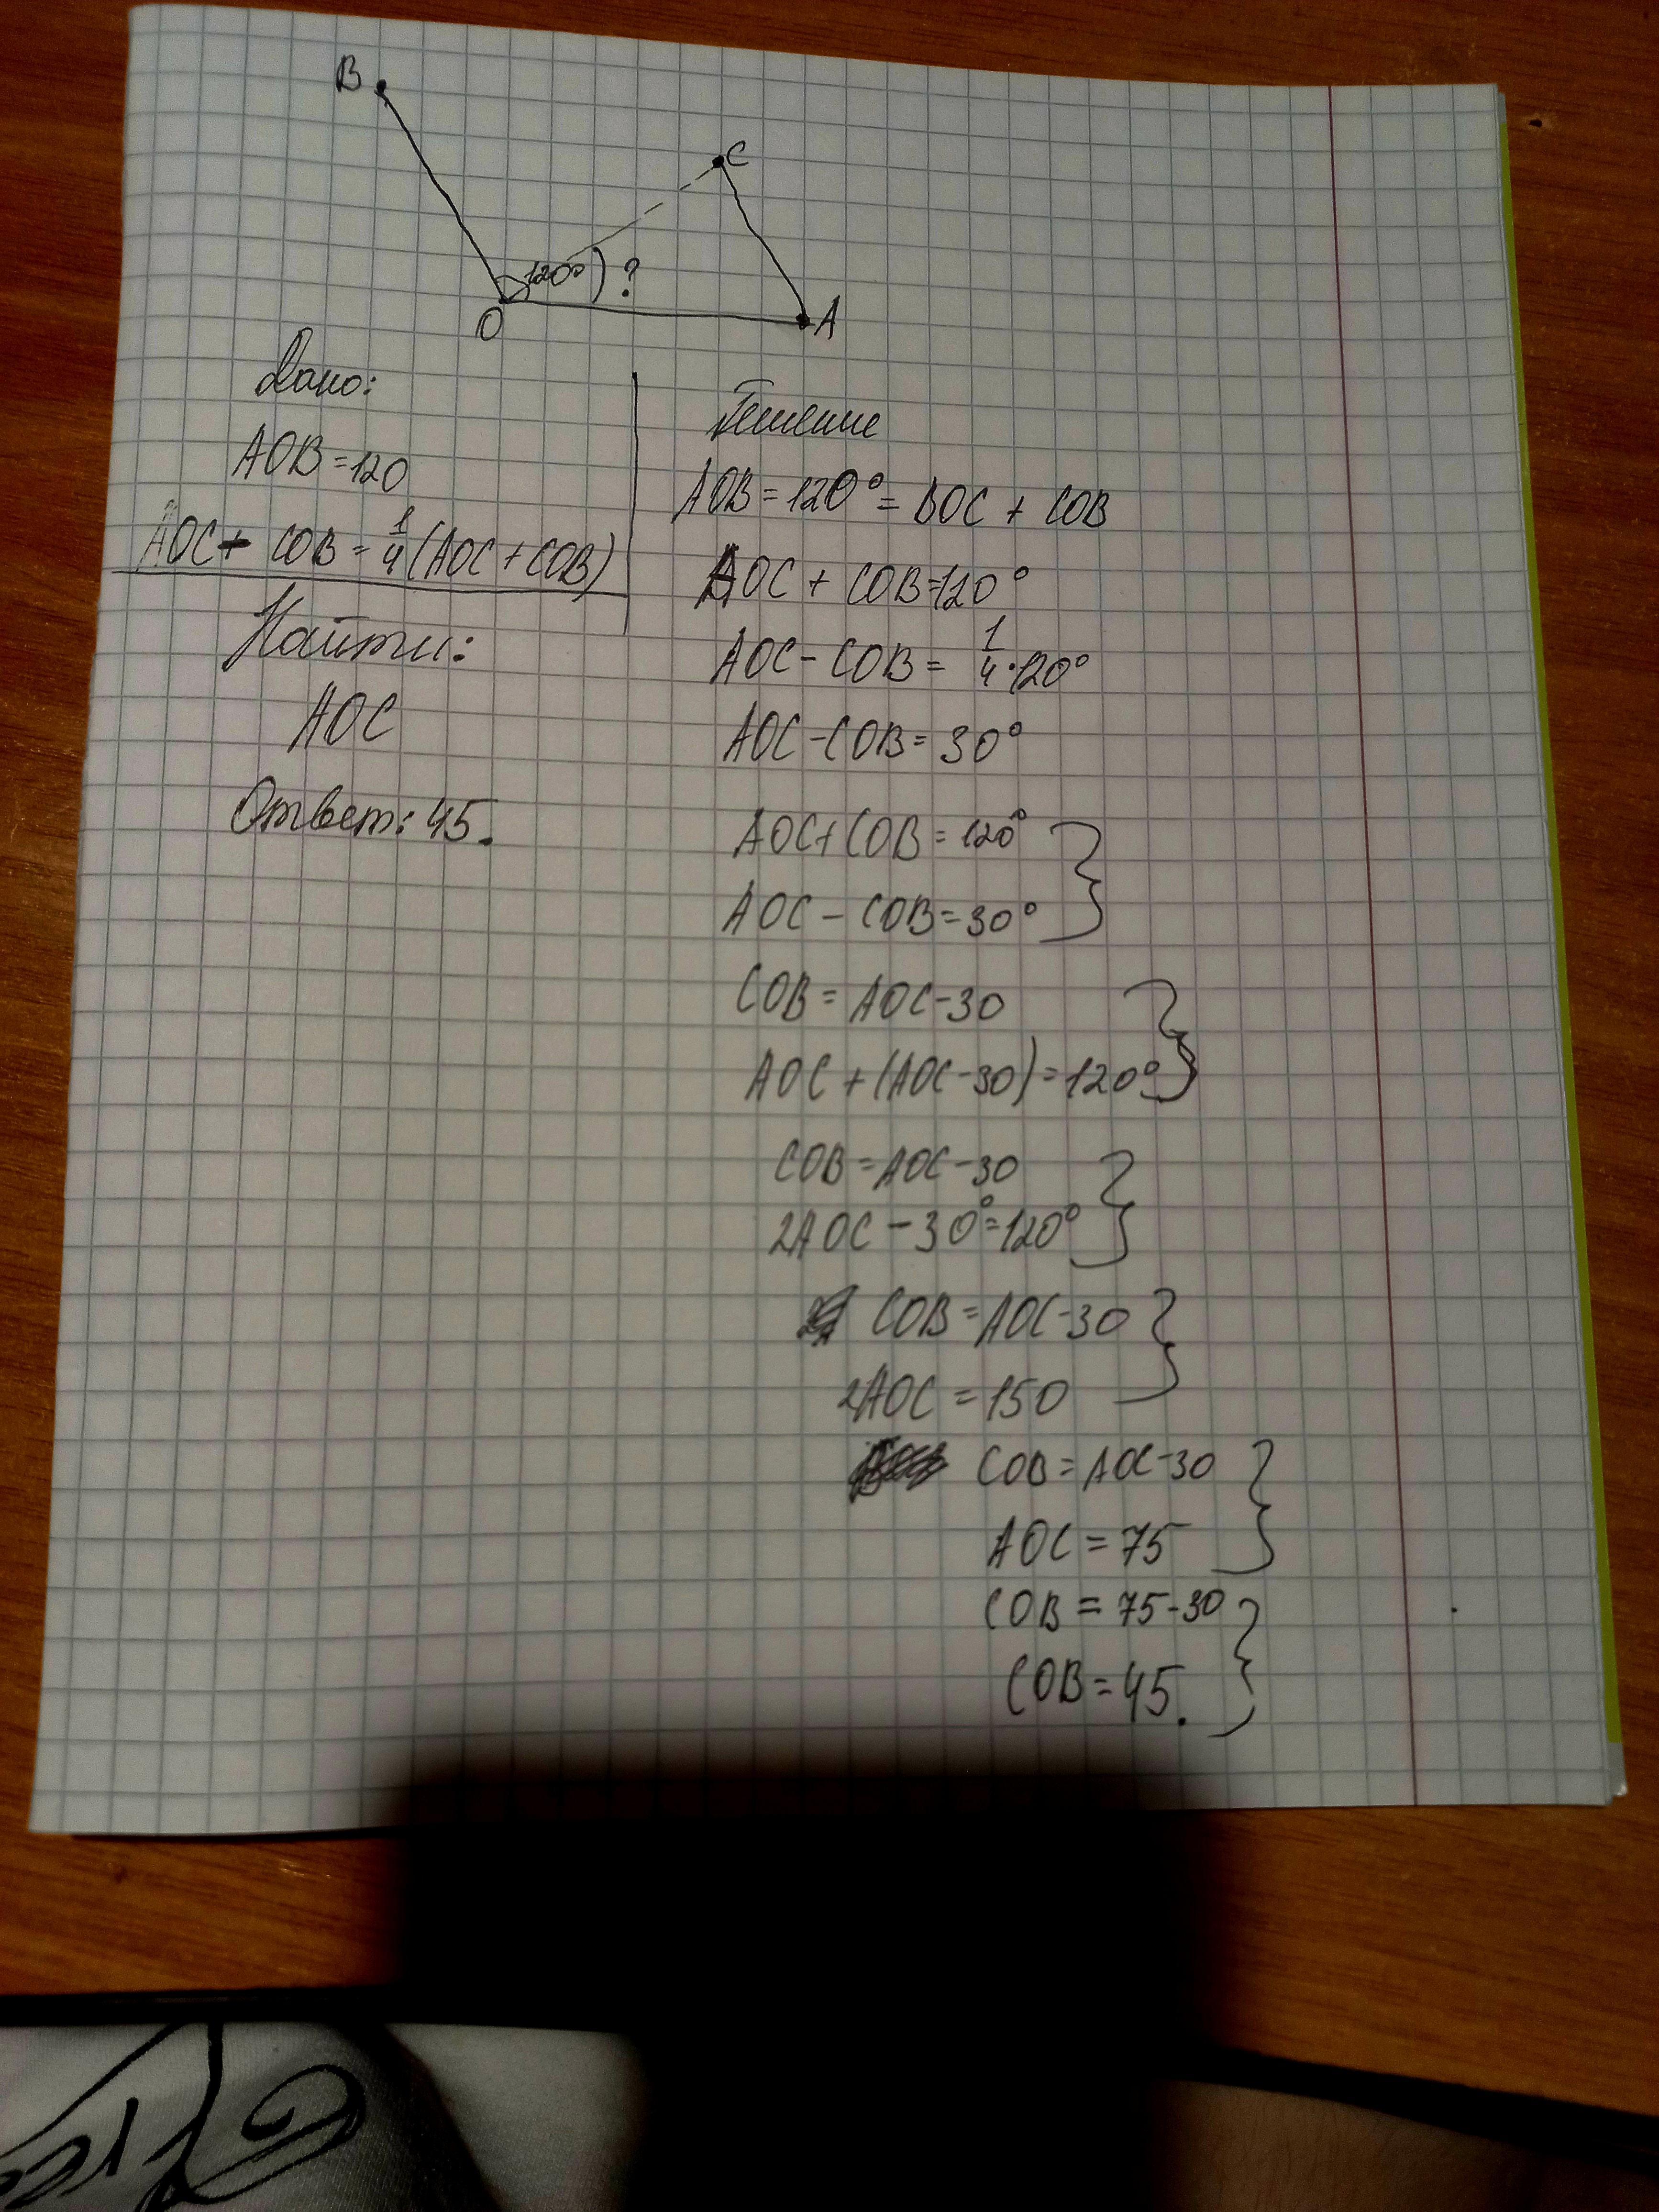 B
C
120°) ?
O
A
Дано:
AOB = 120
AOC - COB = 1/4 (AOC + COB)
Найти:
AOC
Ответ: 45.
Решение
AOB = 120° = BOC + COB
AOC + COB = 120°
AOC - COB = 1/4 · 120°
AOC - COB = 30°
AOC + COB = 120°
AOC - COB = 30°
COB = AOC - 30
AOC + (AOC - 30) = 120°
COB = AOC - 30
2AOC - 30° = 120°
COB = AOC - 30
2AOC = 150
COB = AOC - 30
AOC = 75
COB = 75 - 30
COB = 45.